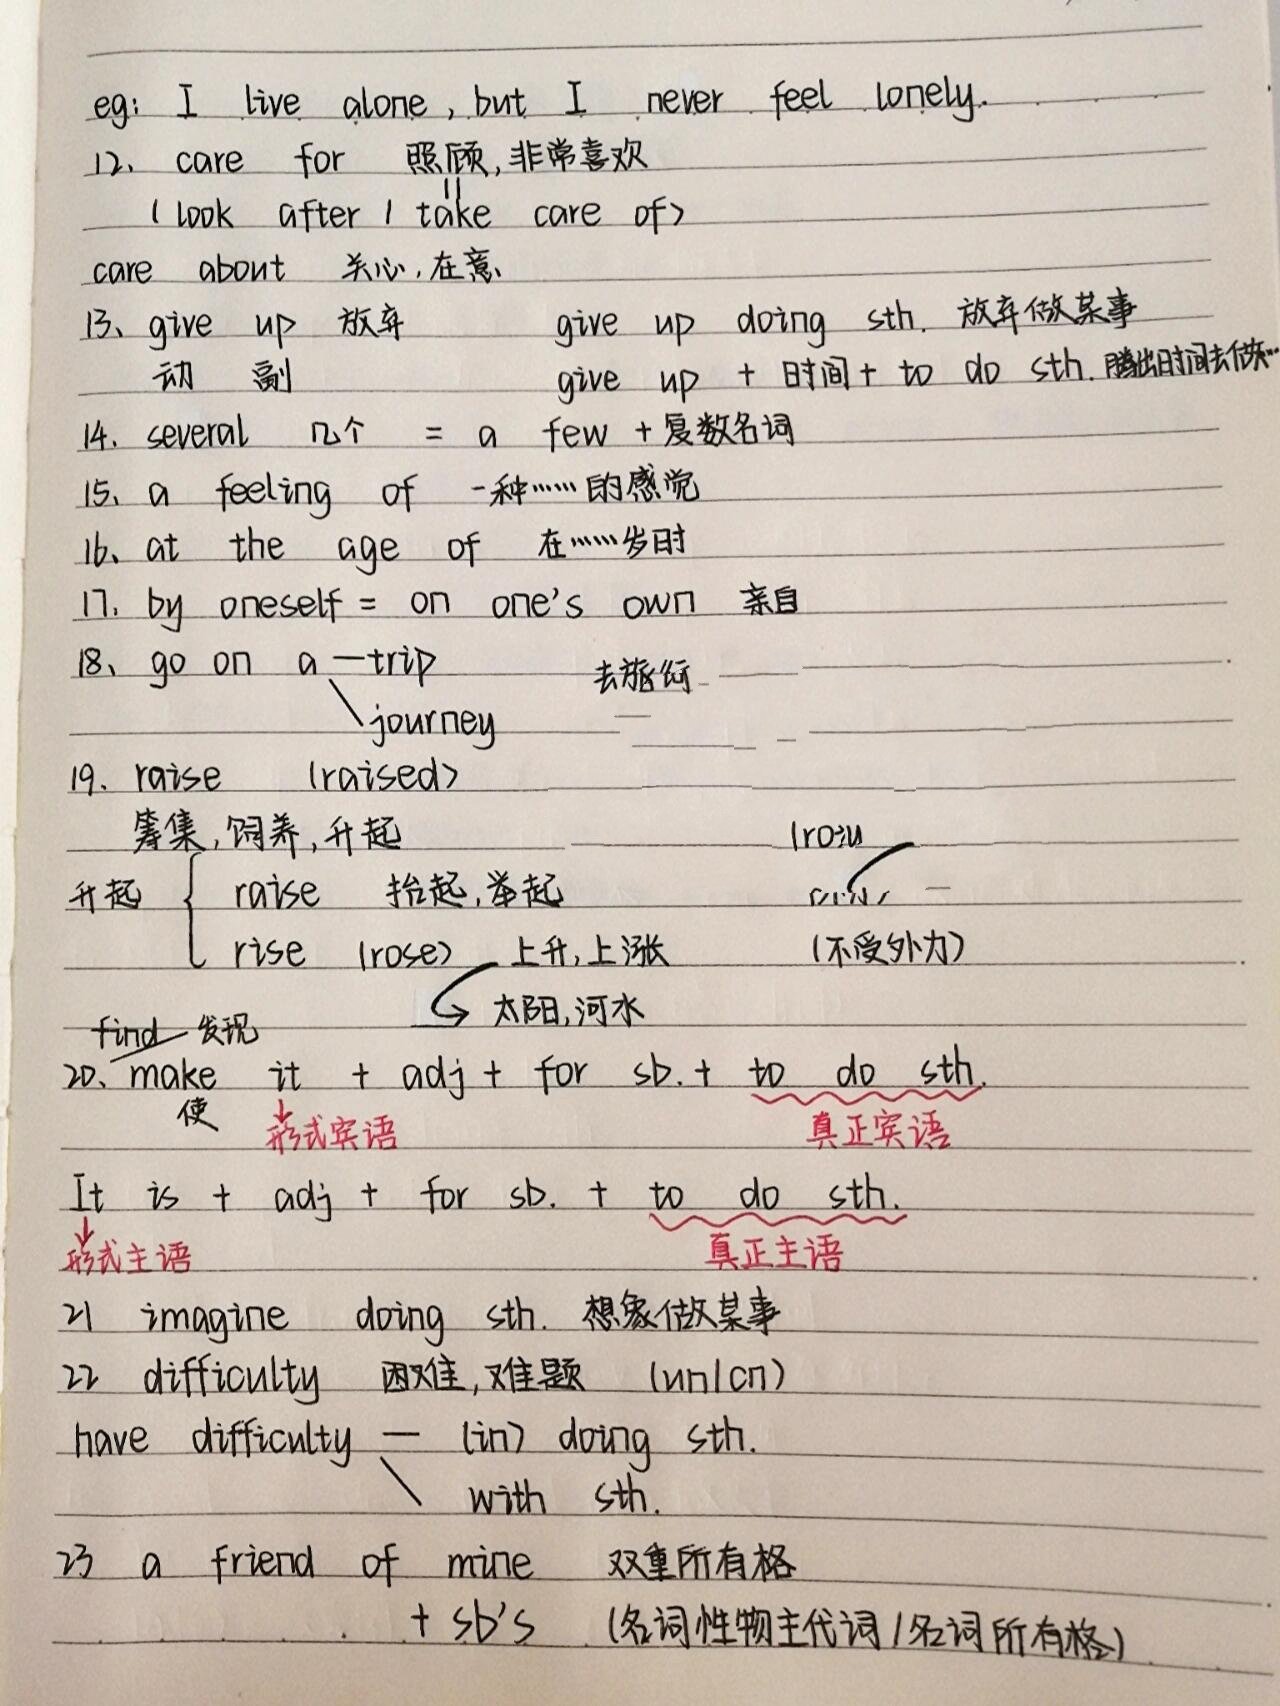 eg: I live alone, but I never feel lonely.
12、 care for 照顾,非常喜欢
(look after / take care of)
care about 关心,在意
13、give up 放弃 give up doing sth. 放弃做某事
动 副 give up + 时间 + to do sth. 腾出时间去做…
14. several 几个 = a few + 复数名词
15、a feeling of 一种……的感觉
16、at the age of 在……岁时
17. by oneself = on one's own 亲自
18、go on a — trip 去旅行
journey
19. raise (raised)
筹集,饲养,升起
升起 { raise 抬起,举起
rise (rose) 上升,上涨 (不受外力)
太阳,河水
find 发现
20、make it + adj + for sb. + to do sth.
使 形式宾语 真正宾语
It is + adj + for sb. + to do sth.
形式主语 真正主语
21 imagine doing sth. 想象做某事
22 difficulty 困难,难题 (un/cn)
have difficulty — (in) doing sth.
with sth.
23 a friend of mine 双重所有格
+ sb's (名词性物主代词/名词所有格)